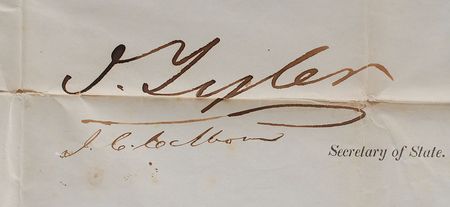 J. Tyler
J. C. Calhoun
Secretary of State.